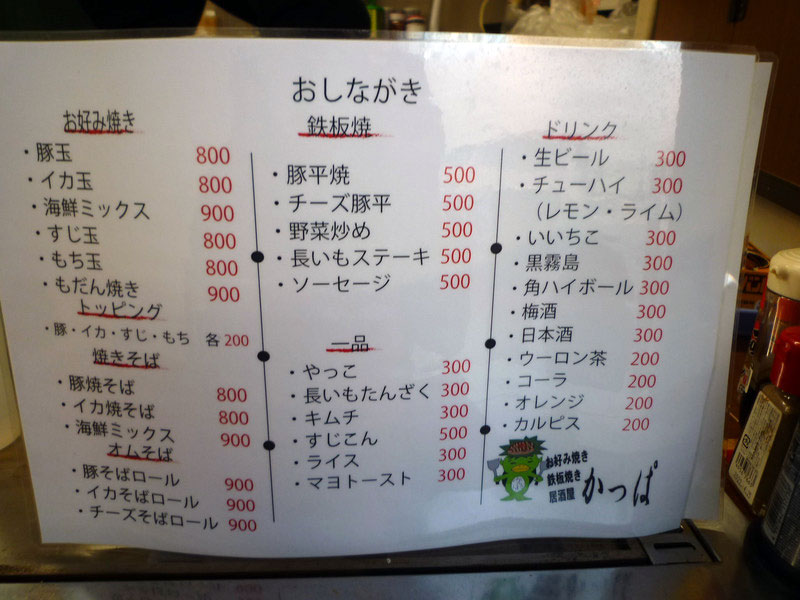 おしながき
お好み焼き
・豚玉 800
・イカ玉 800
・海鮮ミックス 900
・すじ玉 800
・もち玉 800
・もだん焼き 900
トッピング
・豚・イカ・すじ・もち 各200
焼きそば
・豚焼そば 800
・イカ焼そば 800
・海鮮ミックス 900
オムそば
・豚そばロール 900
・イカそばロール 900
・チーズそばロール 900
鉄板焼
・豚平焼 500
・チーズ豚平 500
・野菜炒め 500
・長いもステーキ 500
・ソーセージ 500
一品
・やっこ 300
・長いもたんざく 300
・キムチ 300
・すじこん 500
・ライス 300
・マヨトースト 300
ドリンク
・生ビール 300
・チューハイ 300
（レモン・ライム）
・いいちこ 300
・黒霧島 300
・角ハイボール 300
・梅酒 300
・日本酒 300
・ウーロン茶 200
・コーラ 200
・オレンジ 200
・カルピス 200
お好み焼き
鉄板焼き
居酒屋
かっぱ